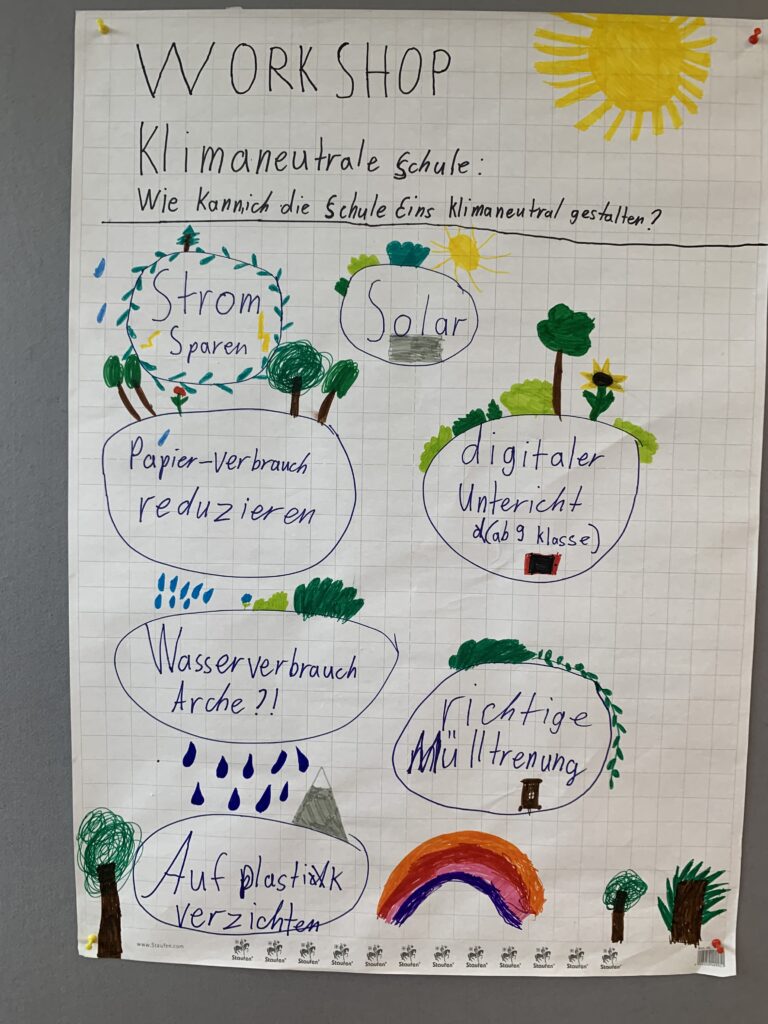 WORKSHOP
Klimaneutrale Schule:
Wie kannich die Schule Eins klimaneutral gestalten?
Strom
Sparen
Solar
Papier-verbrauch
reduzieren
digitaler
Untericht
(ab 9 klasse)
Wasserverbrauch
Arche?!
richtige
Mülltrenung
Auf plastik
verzichten
www.Staufen.com
Staufen Staufen Staufen Staufen Staufen Staufen Staufen Staufen Staufen Staufen Staufen Staufen